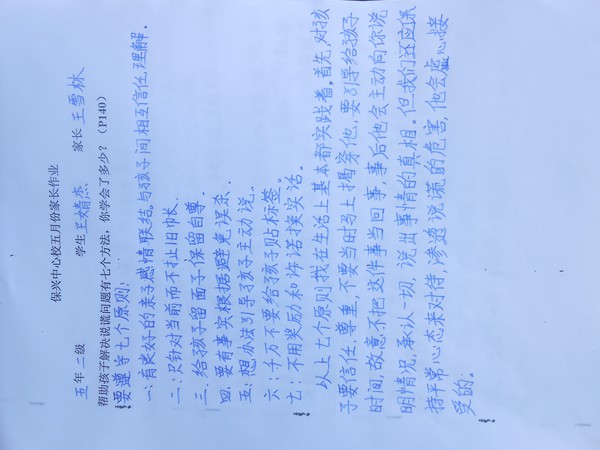 保兴中心校五月份家长作业
五年二级 学生王婧杰 家长王雪林
帮助孩子解决说谎问题有七个方法，你学会了多少？（P140）
要遵守七个原则：
一：有良好的亲子感情联结。与孩子间相互信任理解。
二：只针对当前而不扯旧帐。
三：给孩子留面子保留自尊。
四：要有事实根据避免误杀。
五：想办法引导孩子主动说。
六：千万不要给孩子贴标签。
七：不用奖励和许诺换实话。
从上七个原则我在生活上基本都实践着。首先，对孩
子要信任尊重，不要当时马上揭穿他，要引导给孩子
时间，故意不把这件事当回事，事后他会主动向你说
明情况，承认一切，说出事情的真相。但我们还应保
持平常心态来对待，渗透说谎的危害，他会虚心接
受的。